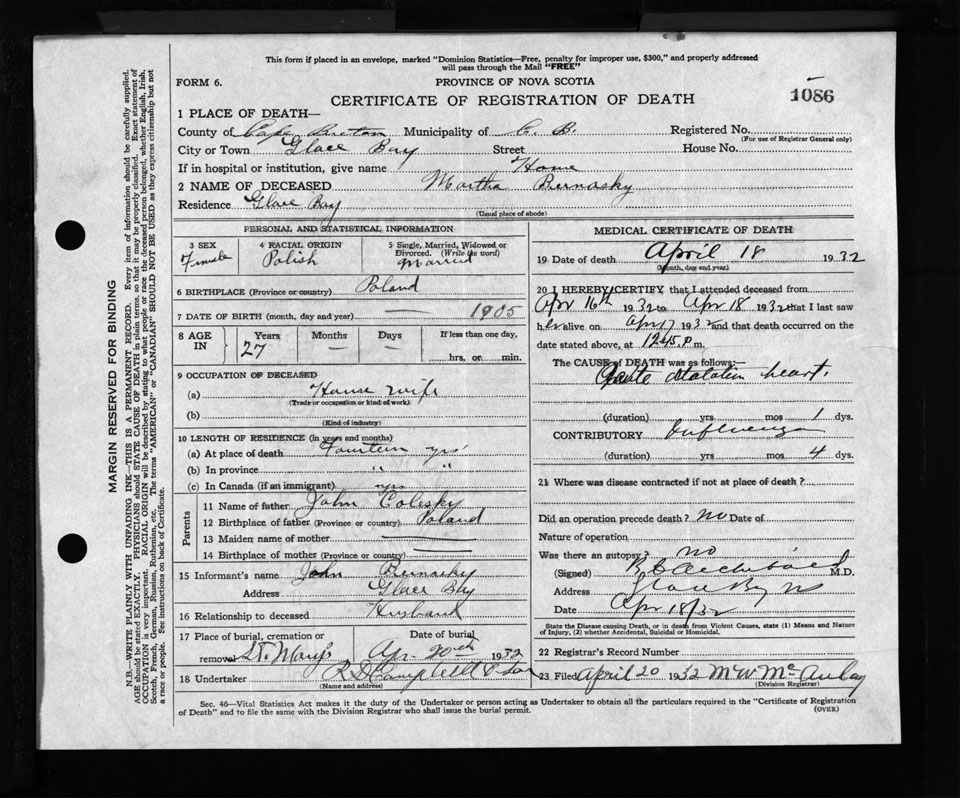 This form if placed in an envelope, marked "Dominion Statistics—Free, penalty for improper use, $300," and properly addressed
will pass through the Mail "FREE"
FORM 6.
PROVINCE OF NOVA SCOTIA
CERTIFICATE OF REGISTRATION OF DEATH
1086
1 PLACE OF DEATH—
County of Cape Breton Municipality of C. B. Registered No.
(For use of Registrar General only)
City or Town Glace Bay Street House No.
If in hospital or institution, give name Home
2 NAME OF DECEASED Martha Bernasky
Residence Glace Bay
(Usual place of abode)
PERSONAL AND STATISTICAL INFORMATION
3 SEX
Female
4 RACIAL ORIGIN
Polish
5 Single, Married, Widowed or
Divorced. (Write the word)
Married
6 BIRTHPLACE (Province or country) Poland
7 DATE OF BIRTH (month, day and year) — 1905
8 AGE
IN
Years
27
Months
—
Days
—
If less than one day,
hrs, or min.
9 OCCUPATION OF DECEASED
(a) House wife
(Trade or occupation or kind of work)
(b)
(Kind of industry)
10 LENGTH OF RESIDENCE (in years and months)
(a) At place of death Fourteen yrs
(b) In province " "
(c) In Canada (if an immigrant) yrs
Parents
11 Name of father John Colesky
12 Birthplace of father (Province or country) Poland
13 Maiden name of mother —
14 Birthplace of mother (Province or country) —
15 Informant's name John Bernasky
Address Glace Bay
16 Relationship to deceased Husband
17 Place of burial, cremation or
removal St. Mary's
Date of burial
Apr. 20th 1932
18 Undertaker R D Campbell
(Name and address)
MEDICAL CERTIFICATE OF DEATH
19 Date of death April 18 1932
(Month, day and year)
20 I HEREBY CERTIFY that I attended deceased from
Apr 16th 1932 to Apr 18 1932 that I last saw
her alive on Apr 17 1932 and that death occurred on the
date stated above, at 12.45 P. m.
The CAUSE of DEATH was as follows:
Acute dilatation heart.
(duration) yrs mos 1 dys.
CONTRIBUTORY Influenza
(duration) yrs mos 4 dys.
21 Where was disease contracted if not at place of death?
Did an operation precede death? no Date of
Nature of operation
Was there an autopsy? no
(Signed) Archibald M.D.
Address Glace Bay NS
Date Apr 18/32
State the Disease causing Death, or in death from Violent Causes, state (1) Means and Nature
of Injury, (2) whether Accidental, Suicidal or Homicidal.
22 Registrar's Record Number
23 Filed April 20 1932 McAulay
(Division Registrar)
Sec. 46—Vital Statistics Act makes it the duty of the Undertaker or person acting as Undertaker to obtain all the particulars required in the "Certificate of Registration
of Death" and to file the same with the Division Registrar who shall issue the burial permit.
(OVER)
MARGIN RESERVED FOR BINDING
N.B.—WRITE PLAINLY WITH UNFADING INK—THIS IS A PERMANENT RECORD. Every item of information should be carefully supplied.
AGE should be stated EXACTLY. PHYSICIANS should STATE CAUSE OF DEATH in plain terms, so that it may be properly classified. Exact statement of
OCCUPATION is very important. RACIAL ORIGIN will be described by stating to what people or race the deceased person belonged, whether English, Irish,
Scotch, French, German, Russian, Ruthenian, etc. The terms "AMERICAN" or "CANADIAN" SHOULD NOT BE USED as they express citizenship but not
a race or people. See instructions on back of Certificate.